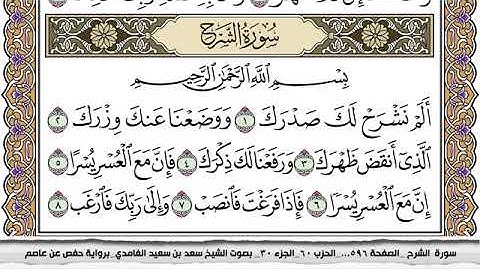 سُورَةُ الشَّرْحِ
بِسْمِ اللَّهِ الرَّحْمَٰنِ الرَّحِيمِ
أَلَمْ نَشْرَحْ لَكَ صَدْرَكَ ١ وَوَضَعْنَا عَنكَ وِزْرَكَ ٢
الَّذِي أَنقَضَ ظَهْرَكَ ٣ وَرَفَعْنَا لَكَ ذِكْرَكَ ٤ فَإِنَّ مَعَ الْعُسْرِ يُسْرًا ٥
إِنَّ مَعَ الْعُسْرِ يُسْرًا ٦ فَإِذَا فَرَغْتَ فَانصَبْ ٧ وَإِلَىٰ رَبِّكَ فَارْغَب ٨
سورة الشرح _الصفحة ٥٩٦... _الحزب ٦٠ _الجزء ٣٠ _ بصوت الشيخ سعد بن سعيد الغامدي _برواية حفص عن عاصم